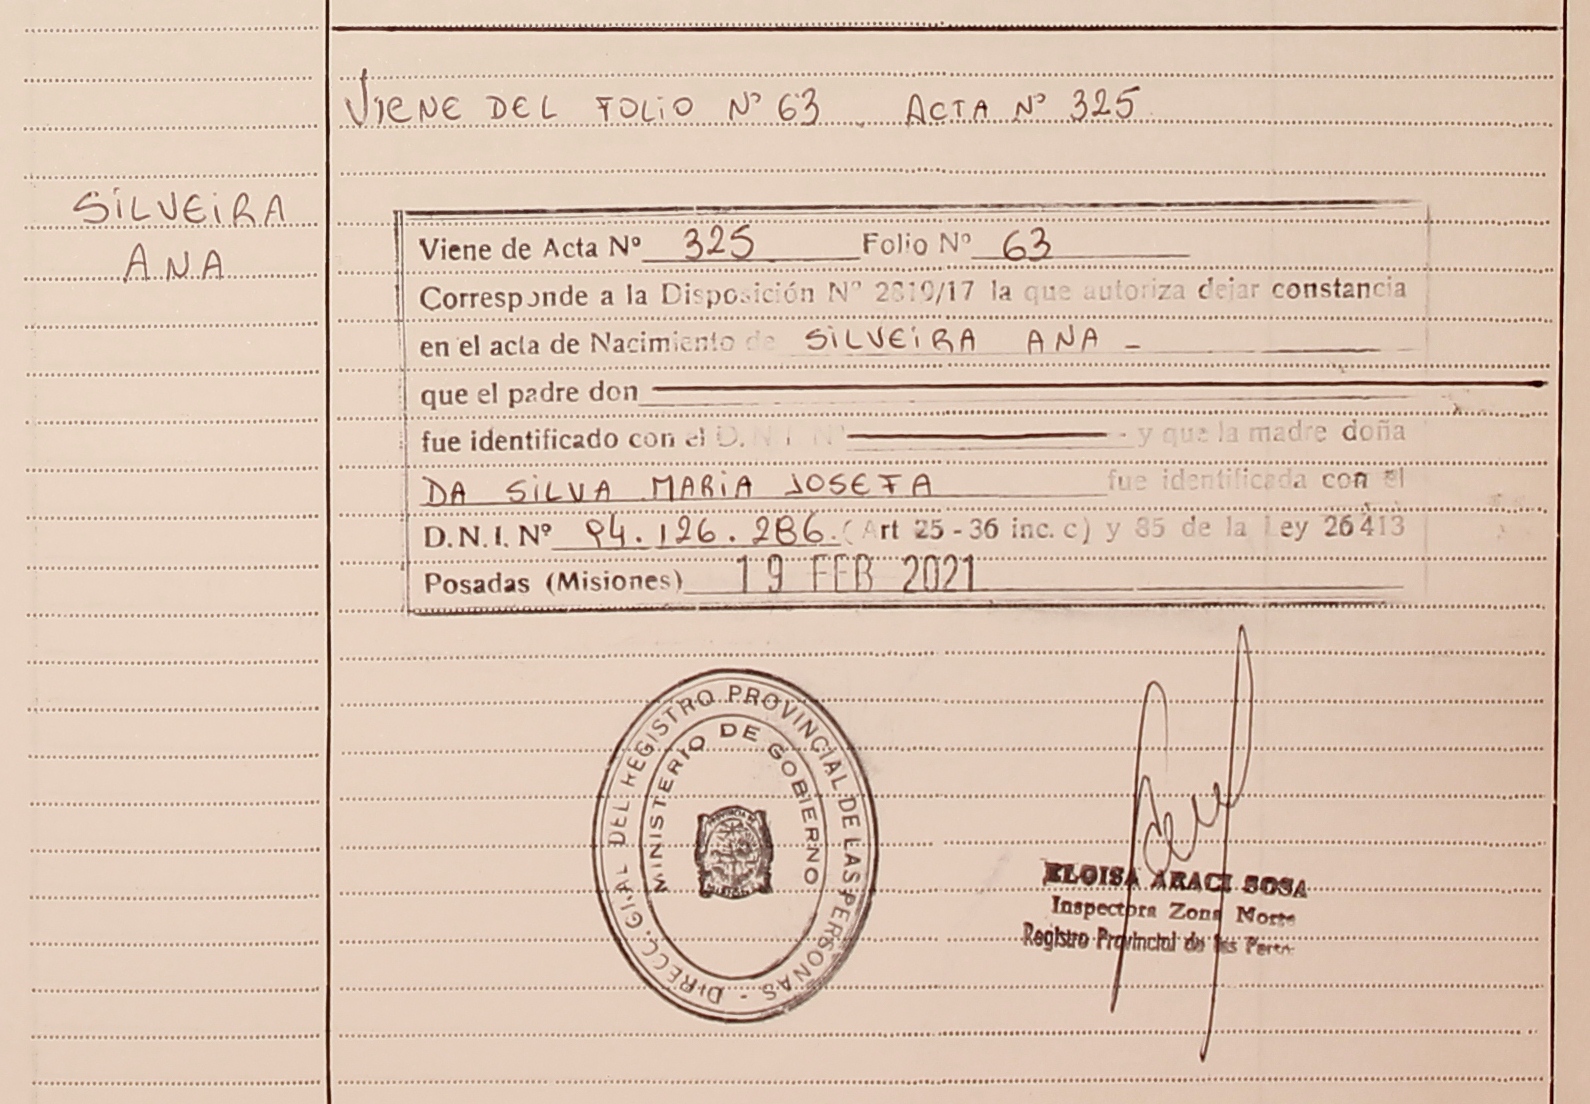 VIENE DEL FOLIO Nº 63 ACTA Nº 325
SILVEIRA
ANA
Viene de Acta Nº 325 Folio Nº 63
Corresponde a la Disposición Nº 2810/17 la que autoriza dejar constancia
en el acta de Nacimiento de SILVEIRA ANA -
que el padre don
fue identificado con el D.N.I. Nº - y que la madre doña
DA SILVA MARIA JOSEFA fue identificada con el
D.N.I. Nº 94.126.286. (Art 25 - 36 inc. c) y 85 de la Ley 26413
Posadas (Misiones) 19 FEB 2021
DIRECC. GRAL DEL REGISTRO PROVINCIAL DE LAS PERSONAS -
MINISTERIO DE GOBIERNO
ELOISA ARACI SOSA
Inspectora Zona Norte
Registro Provincial de las Pers.